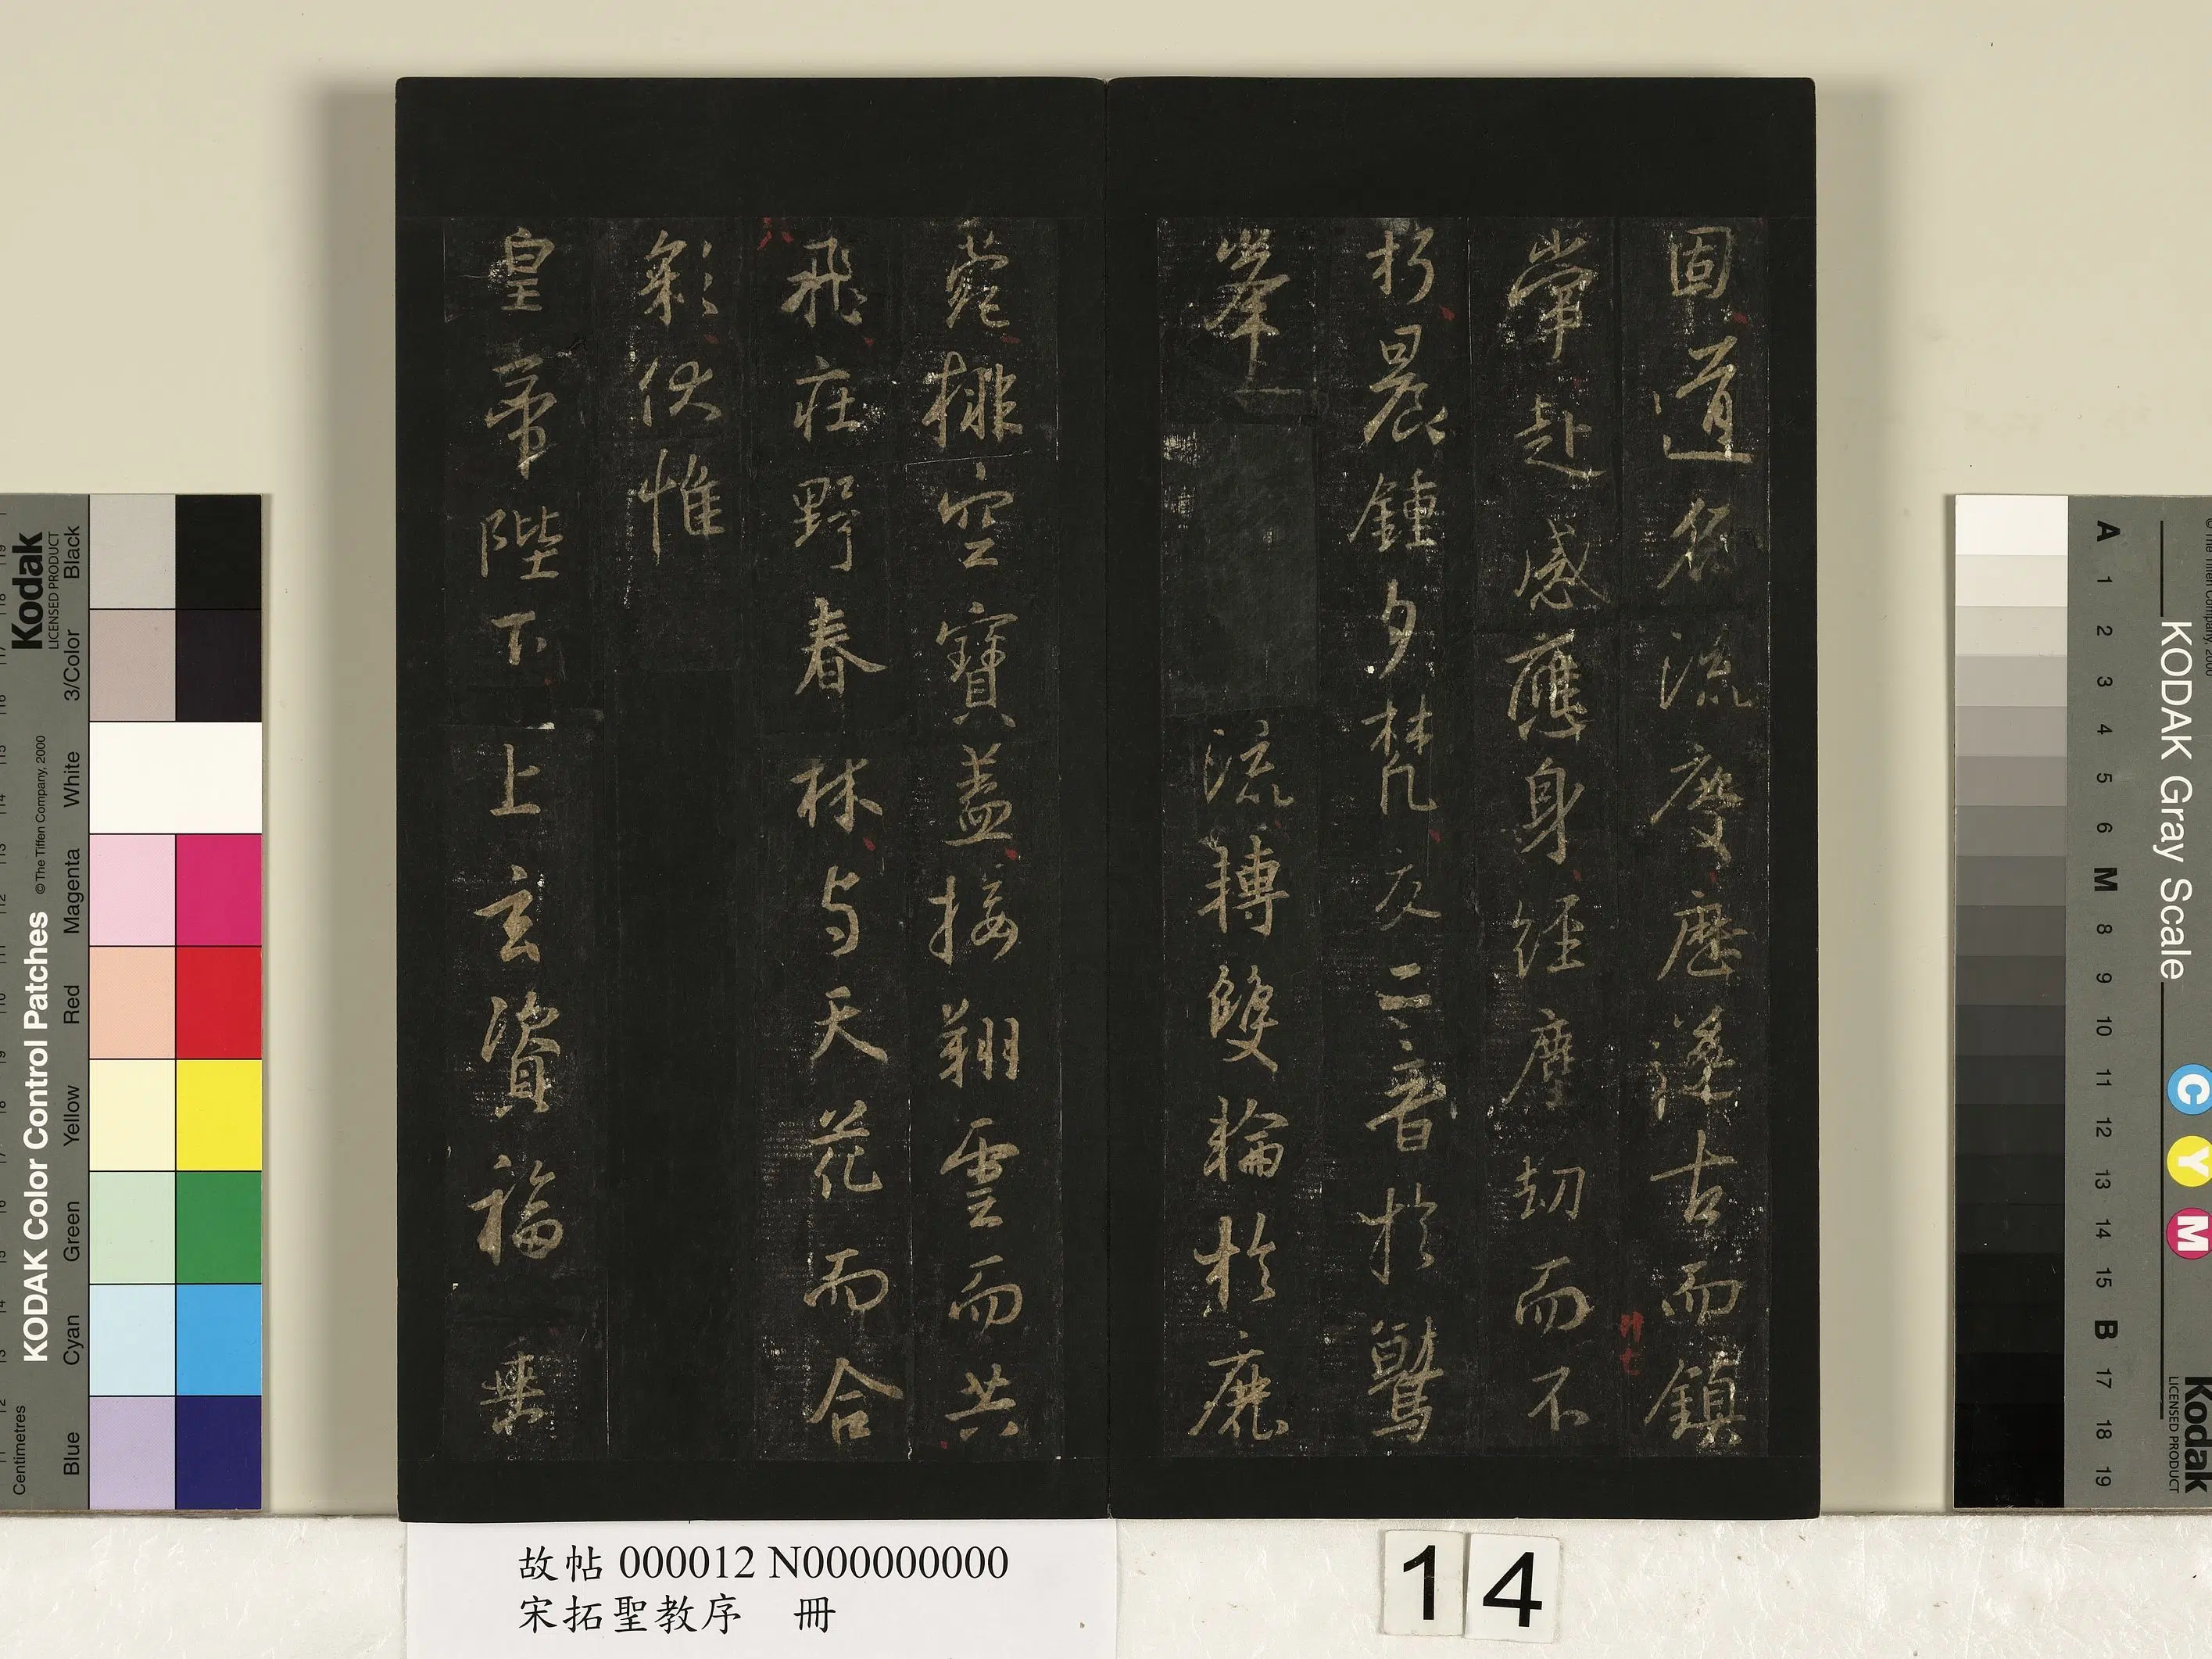 固道名流慶歷遂古而鎮
常赴感應身經塵劫而不
朽晨鍾夕梵交二音於鷲
峯流轉雙輪於鹿
菀排空寶蓋接翔雲而共
飛莊野春林与天花而合
彩伏惟
皇帝陛下上玄資福垂
故帖 000012 N000000000
宋拓聖教序 冊
14
KODAK Color Control Patches
© The Tiffen Company, 2000
Kodak
LICENSED PRODUCT
Centimetres
Blue Cyan Green Yellow Red Magenta White 3/Color Black
KODAK Gray Scale
Kodak
LICENSED PRODUCT
A 1 2 3 4 5 6 M 8 9 10 11 12 13 14 15 B 17 18 19
C Y M